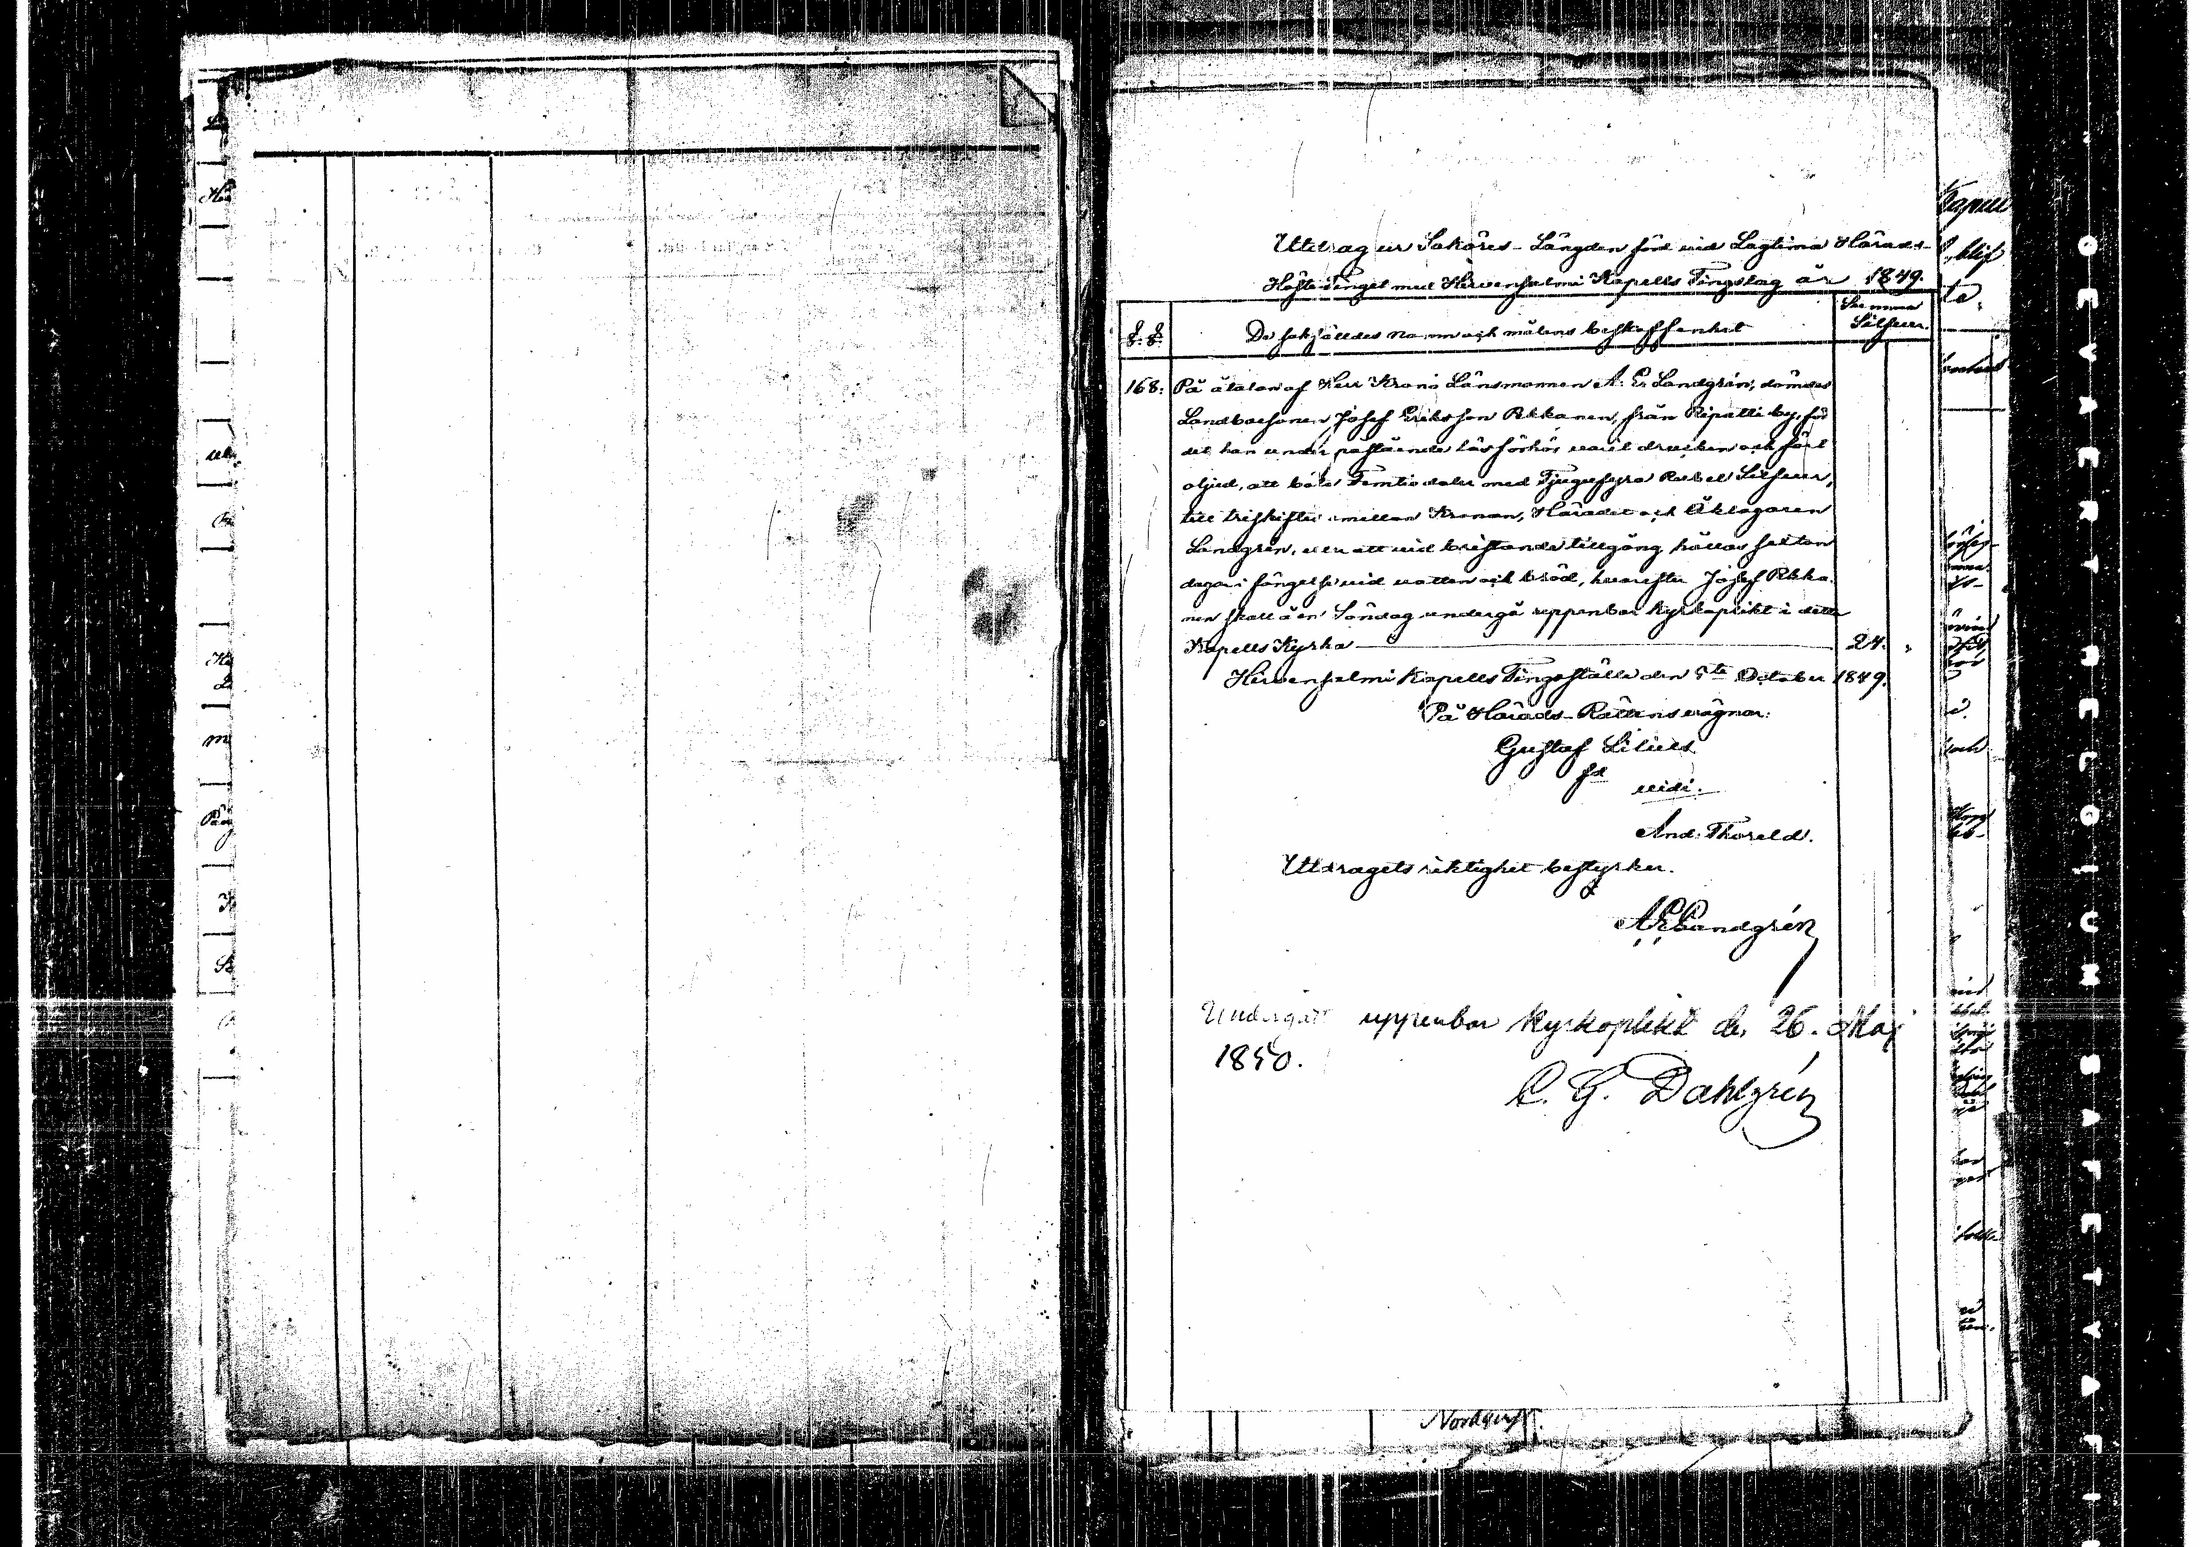 Utdrag ur Saköres-Längden förd vid Lagtima Härads-
Höste Tinget med Hirvensalmi Kapells Tingslag år 1849.
§. §.
De sakfälldes namn och målens beskaffenhet
Summa
Silfver.
168. På åtalan af Herr Krono Länsmannen A. E. Landgrén, dömdes
Landbosonen Josef Eriksson Pekkanen, från Ripatti by, för
det han under påstående läsförhör varit drucken och fört
oljud, att böta Femtio daler med Tjugufyra Rubel Silfver,
till treskiftes emellan Kronan, Häradet och Åklagaren
Landgrén, eller att vid bristande tillgång hållas sexton
dagar i fängelse vid vatten och bröd, hvarefter Josef Pekka-
nen skall å en Söndag undergå uppenbar kyrkoplikt i detta
Kapells Kyrka 24. "
Hirvensalmi Kapells Tingsställe den 5te October 1849.
På Härads-Rättens vägnar:
Gustaf Lilius
vidi.
And. Thoreld.
Utdragets riktighet bestyrker.
A E Landgrén
Undergått uppenbar kyrkoplikt den 26. Maj
1850.
C. G. Dahlgrén
Nordqvist.